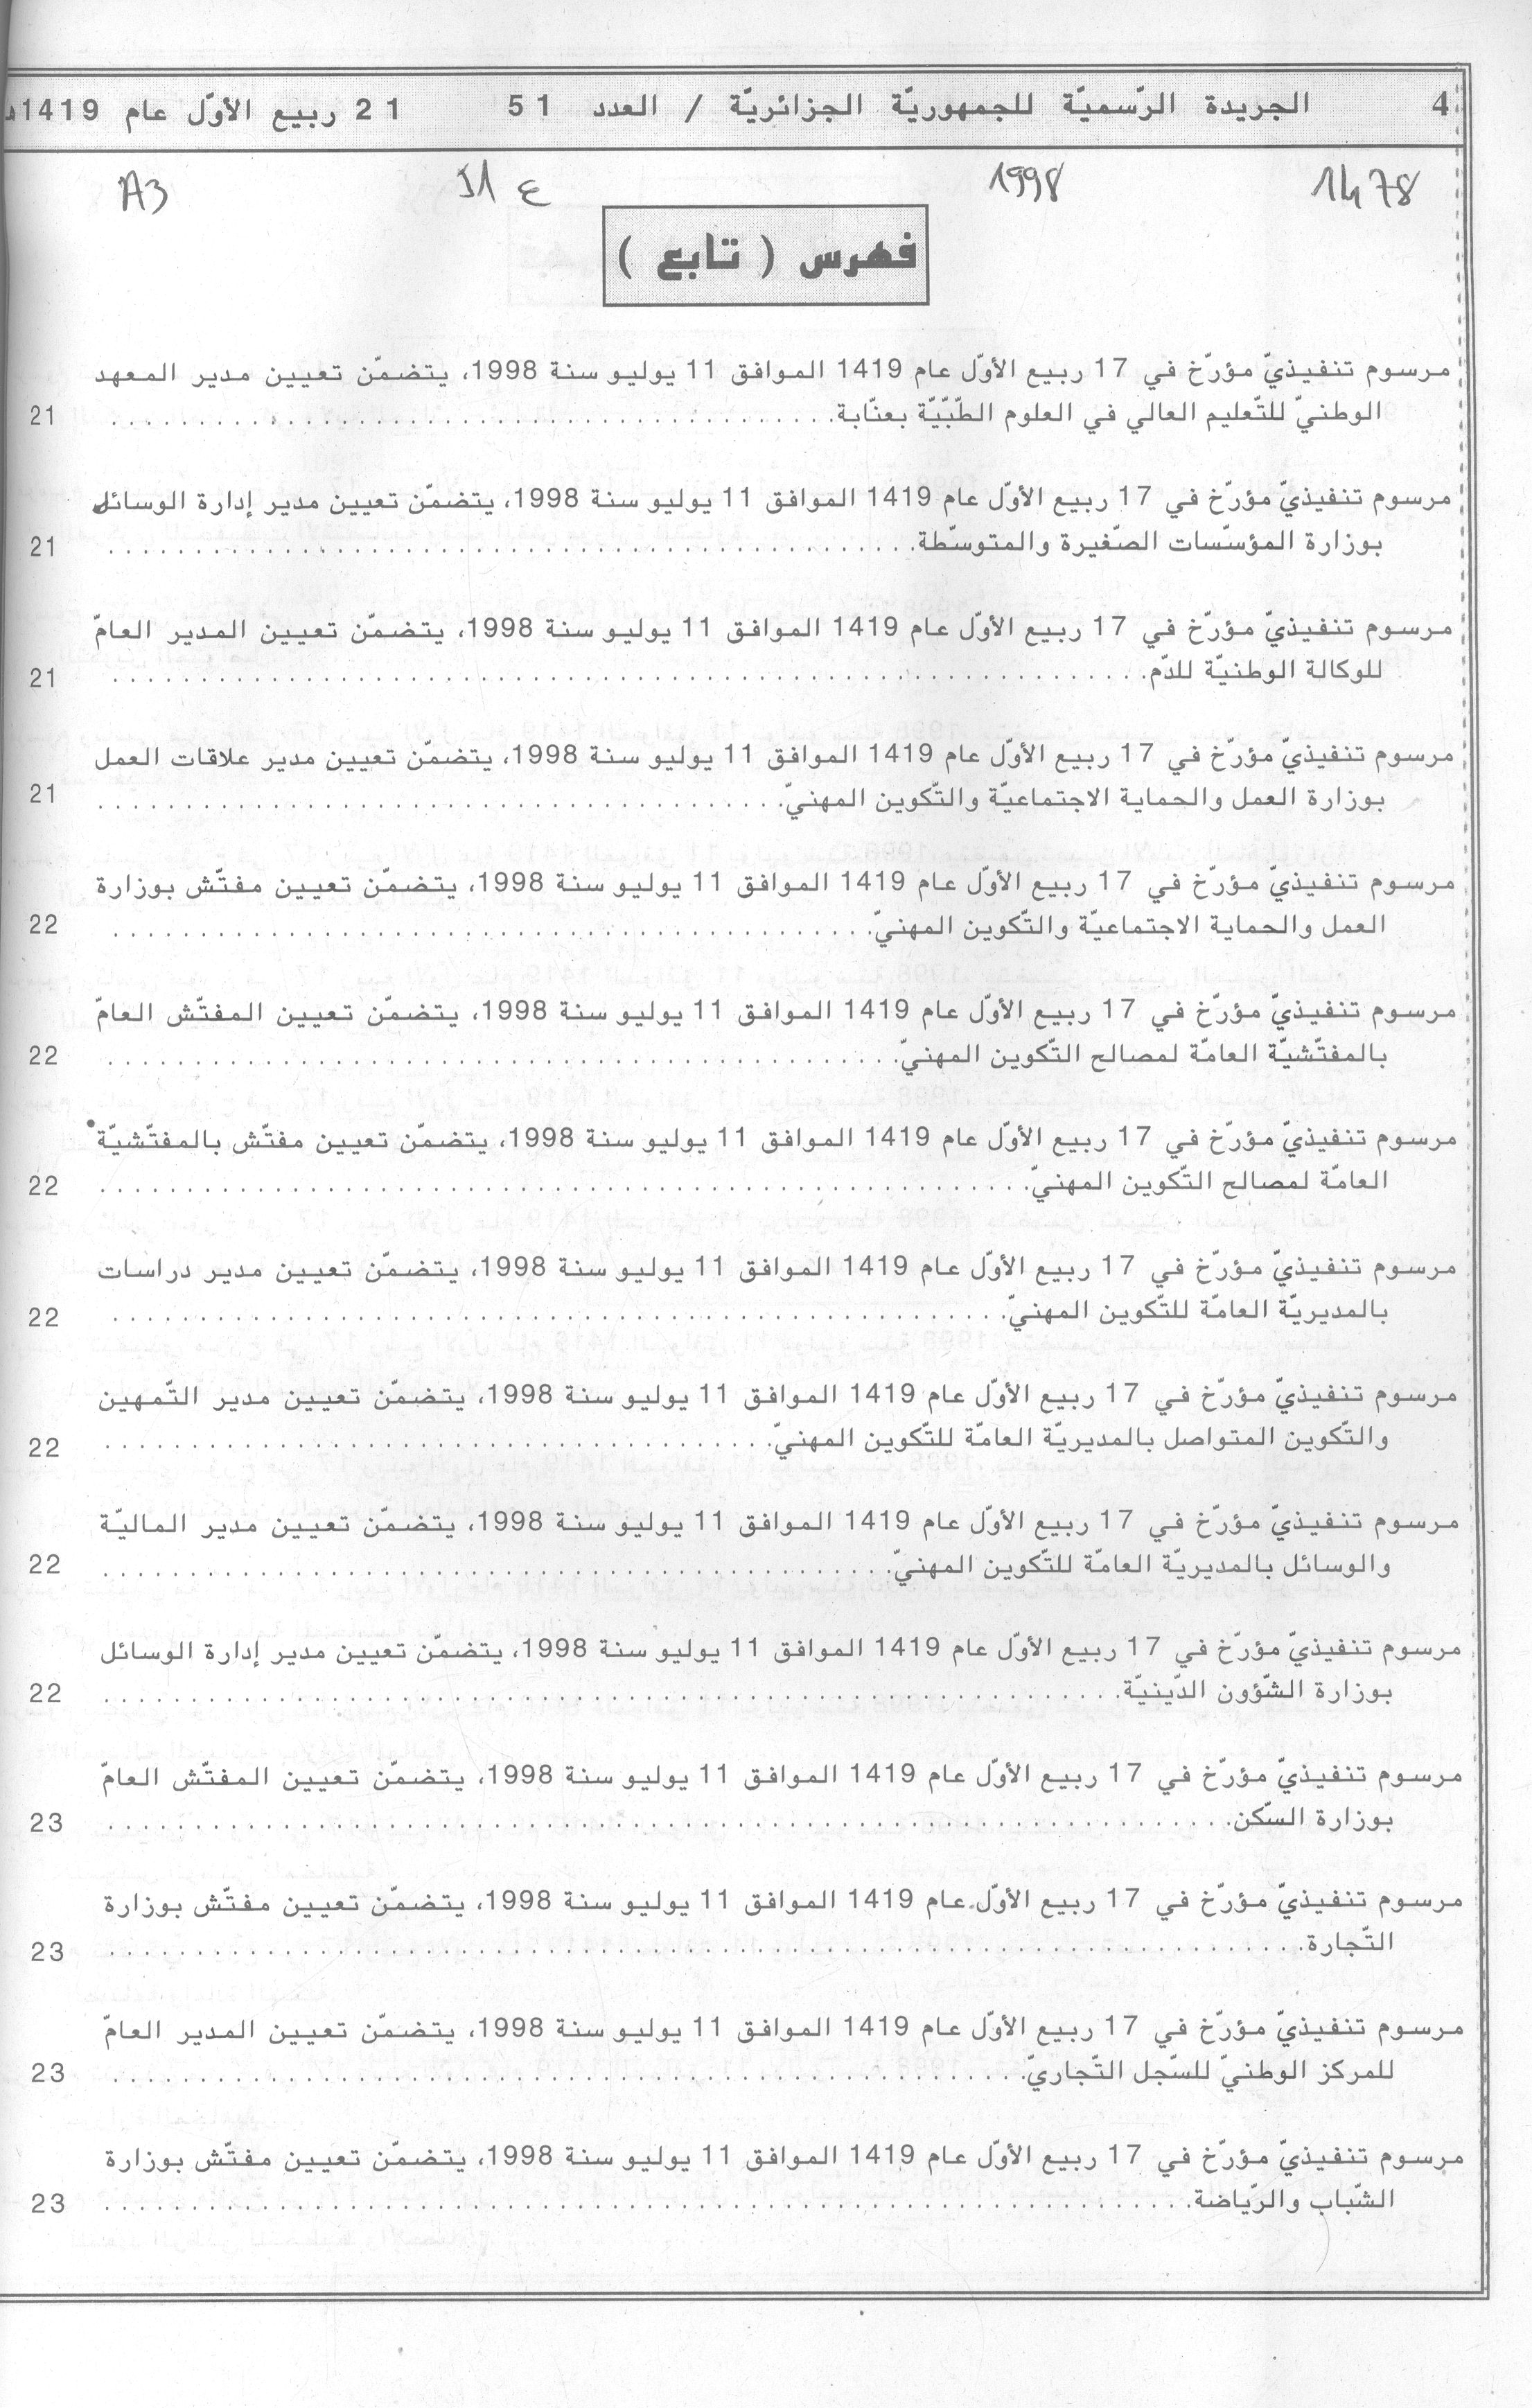 4 الجريدة الرّسميّة للجمهوريّة الجزائريّة / العدد 51 21 ربيع الأوّل عام 1419هـ
1478 1998 ع 51 A3
فهرس ( تابع )
مرسوم تنفيذيّ مؤرّخ في 17 ربيع الأوّل عام 1419 الموافق 11 يوليو سنة 1998، يتضمّن تعيين مدير المعهد
الوطنيّ للتّعليم العالي في العلوم الطّبّيّة بعنّابة. . . . . . . . . . 21
مرسوم تنفيذيّ مؤرّخ في 17 ربيع الأوّل عام 1419 الموافق 11 يوليو سنة 1998، يتضمّن تعيين مدير إدارة الوسائل
بوزارة المؤسّسات الصّغيرة والمتوسّطة. . . . . . . . . . 21
مرسوم تنفيذيّ مؤرّخ في 17 ربيع الأوّل عام 1419 الموافق 11 يوليو سنة 1998، يتضمّن تعيين المدير العامّ
للوكالة الوطنيّة للدّم. . . . . . . . . . 21
مرسوم تنفيذيّ مؤرّخ في 17 ربيع الأوّل عام 1419 الموافق 11 يوليو سنة 1998، يتضمّن تعيين مدير علاقات العمل
بوزارة العمل والحماية الاجتماعيّة والتّكوين المهنيّ. . . . . . . . . . 21
مرسوم تنفيذيّ مؤرّخ في 17 ربيع الأوّل عام 1419 الموافق 11 يوليو سنة 1998، يتضمّن تعيين مفتّش بوزارة
العمل والحماية الاجتماعيّة والتّكوين المهنيّ. . . . . . . . . . 22
مرسوم تنفيذيّ مؤرّخ في 17 ربيع الأوّل عام 1419 الموافق 11 يوليو سنة 1998، يتضمّن تعيين المفتّش العامّ
بالمفتّشيّة العامّة لمصالح التّكوين المهنيّ. . . . . . . . . . 22
مرسوم تنفيذيّ مؤرّخ في 17 ربيع الأوّل عام 1419 الموافق 11 يوليو سنة 1998، يتضمّن تعيين مفتّش بالمفتّشيّة
العامّة لمصالح التّكوين المهنيّ. . . . . . . . . . 22
مرسوم تنفيذيّ مؤرّخ في 17 ربيع الأوّل عام 1419 الموافق 11 يوليو سنة 1998، يتضمّن تعيين مدير دراسات
بالمديريّة العامّة للتّكوين المهنيّ. . . . . . . . . . 22
مرسوم تنفيذيّ مؤرّخ في 17 ربيع الأوّل عام 1419 الموافق 11 يوليو سنة 1998، يتضمّن تعيين مدير التّمهين
والتّكوين المتواصل بالمديريّة العامّة للتّكوين المهنيّ. . . . . . . . . . 22
مرسوم تنفيذيّ مؤرّخ في 17 ربيع الأوّل عام 1419 الموافق 11 يوليو سنة 1998، يتضمّن تعيين مدير الماليّة
والوسائل بالمديريّة العامّة للتّكوين المهنيّ. . . . . . . . . . 22
مرسوم تنفيذيّ مؤرّخ في 17 ربيع الأوّل عام 1419 الموافق 11 يوليو سنة 1998، يتضمّن تعيين مدير إدارة الوسائل
بوزارة الشّؤون الدّينيّة. . . . . . . . . . 22
مرسوم تنفيذيّ مؤرّخ في 17 ربيع الأوّل عام 1419 الموافق 11 يوليو سنة 1998، يتضمّن تعيين المفتّش العامّ
بوزارة السّكن. . . . . . . . . . 23
مرسوم تنفيذيّ مؤرّخ في 17 ربيع الأوّل عام 1419 الموافق 11 يوليو سنة 1998، يتضمّن تعيين مفتّش بوزارة
التّجارة. . . . . . . . . . 23
مرسوم تنفيذيّ مؤرّخ في 17 ربيع الأوّل عام 1419 الموافق 11 يوليو سنة 1998، يتضمّن تعيين المدير العامّ
للمركز الوطنيّ للسّجل التّجاريّ. . . . . . . . . . 23
مرسوم تنفيذيّ مؤرّخ في 17 ربيع الأوّل عام 1419 الموافق 11 يوليو سنة 1998، يتضمّن تعيين مفتّش بوزارة
الشّباب والرّياضة. . . . . . . . . . 23